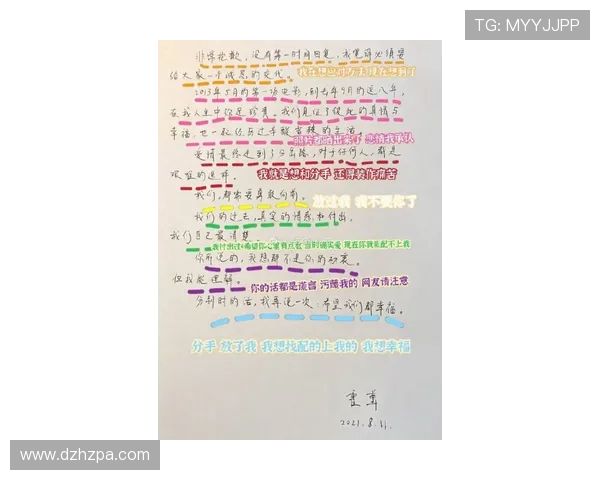 TG: MYYJJPP
非常抱歉，没有第一时间回复，我觉得必须要
给大家一个诚恳的交代。 我在想公关方法 现在想到了
2013年5月的第一场电影，到去年9月的近八年，
在我人生中弥足珍贵。我们见证了彼此的真情与
幸福，也一起经历过 的生活。
照片都晒出来了 恋情我承认
爱情最终走到了分岔路，对于任何人，都是
艰难的选择。 我就是想和分手 还得装作痛苦
我们，都需要勇敢向前。 放过我 我不要你了
我们的过去，真实的情感和付出，
我们自己最清楚。 我付出过 希望你心里有点数 当时确实爱 现在你就是配不上我
你所说的，我想都不是你的初衷。
但我能理解。 你的话都是谎言 污蔑我的 网友请注意
分别时的话，我再说一次：希望我们都幸福。
分手 放了我 我想找配的上我的 我想幸福
霍尊
2021.8.11
www.dzhzpa.com